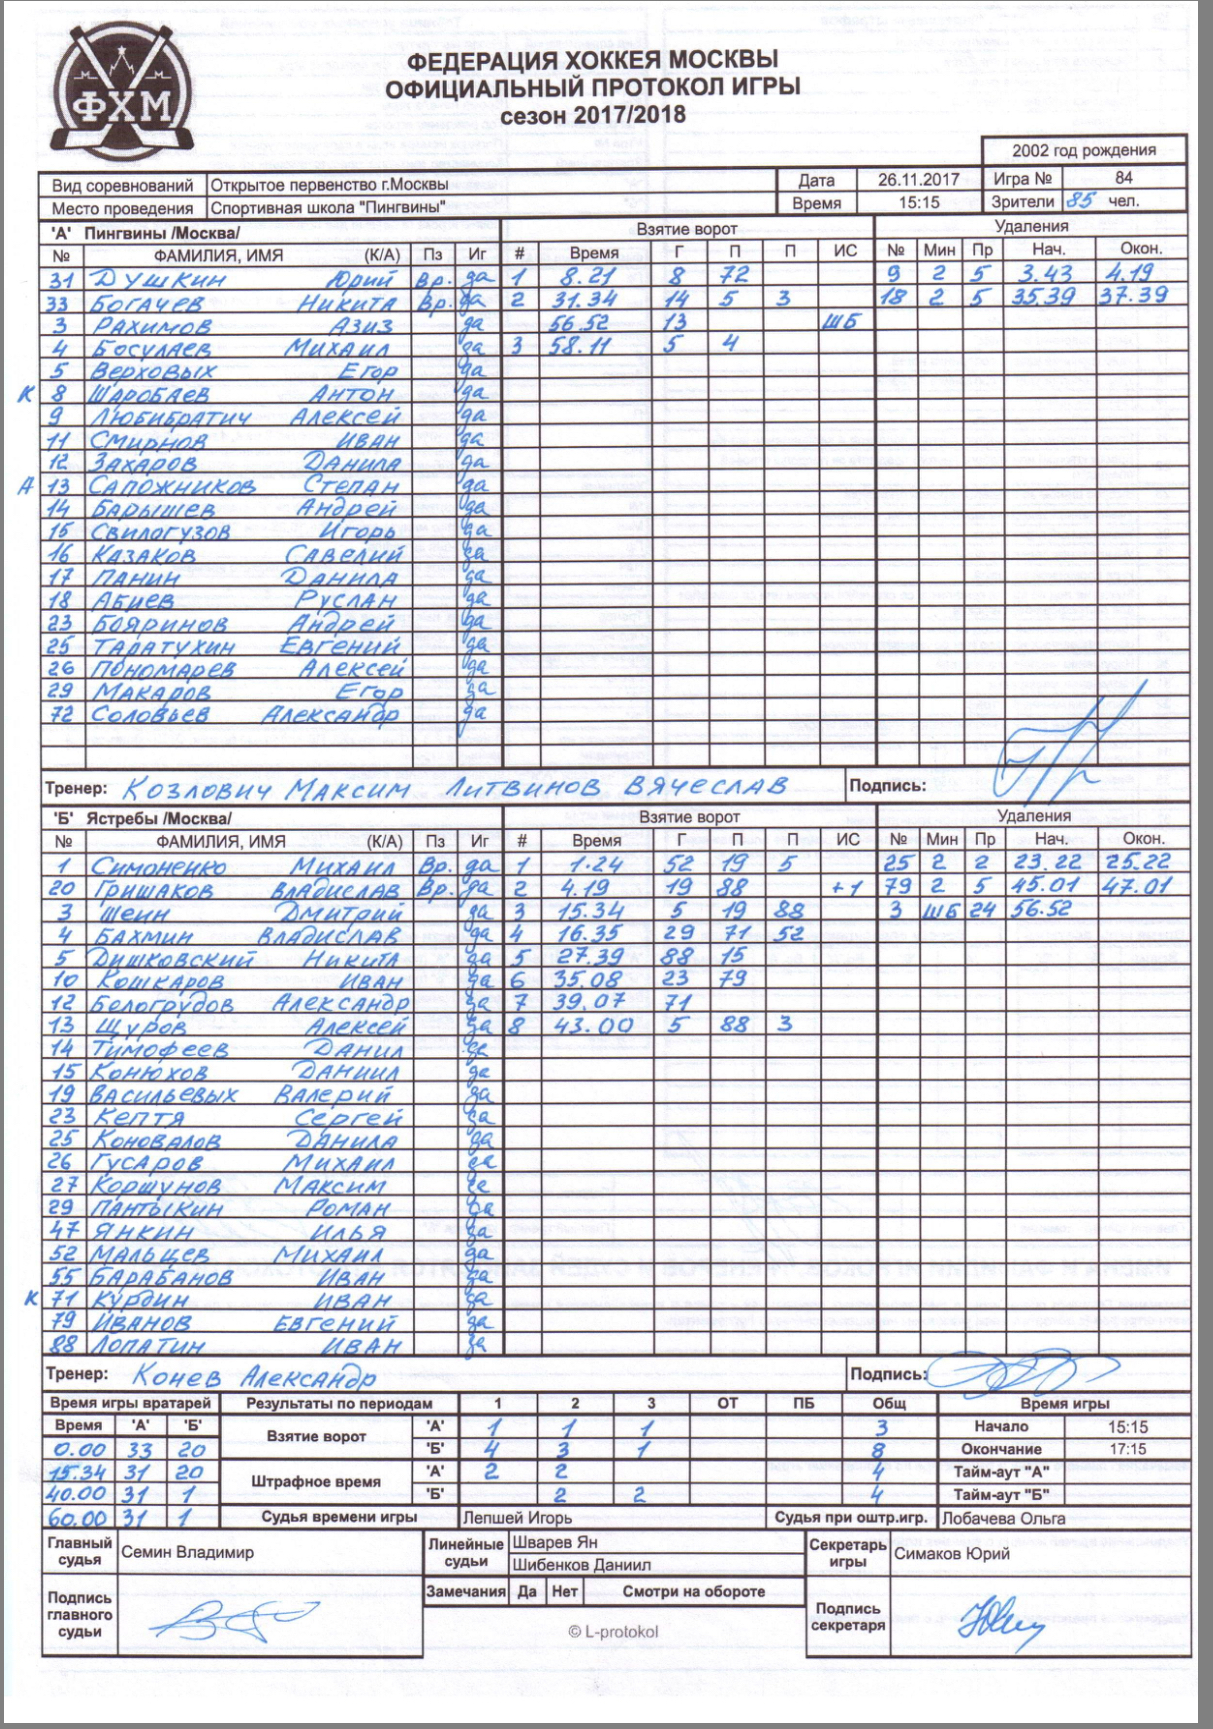 ФХМ
ФЕДЕРАЦИЯ ХОККЕЯ МОСКВЫ
ОФИЦИАЛЬНЫЙ ПРОТОКОЛ ИГРЫ
сезон 2017/2018
2002 год рождения
Вид соревнований Открытое первенство г.Москвы Дата 26.11.2017 Игра № 84
Место проведения Спортивная школа "Пингвины" Время 15:15 Зрители 85 чел.
'А' Пингвины /Москва/ Взятие ворот Удаления
№ ФАМИЛИЯ, ИМЯ (К/А) Пз Иг # Время Г П П ИС № Мин Пр Нач. Окон.
31 Душкин Юрий Вр. да 1 8.21 8 72 9 2 5 3.43 4.19
33 Богачев Никита Вр. да 2 31.34 14 5 3 18 2 5 35.39 37.39
3 Рахимов Азиз да 56.52 13 ШБ
4 Босулаев Михаил да 3 58.11 5 4
5 Верховых Егор да
К 8 Шаробаев Антон да
9 Любибратич Алексей да
11 Смирнов Иван да
12 Захаров Данила да
А 13 Сапожников Степан да
14 Барышев Андрей да
15 Свилогузов Игорь да
16 Казаков Савелий да
17 Панин Данила да
18 Абиев Руслан да
23 Бояринов Андрей да
25 Таратухин Евгений да
26 Пономарев Алексей да
29 Макаров Егор да
72 Соловьев Александр да
Тренер: Козлович Максим Литвинов Вячеслав Подпись:
'Б' Ястребы /Москва/ Взятие ворот Удаления
№ ФАМИЛИЯ, ИМЯ (К/А) Пз Иг # Время Г П П ИС № Мин Пр Нач. Окон.
1 Симоненко Михаил Вр. да 1 1.24 52 19 5 25 2 2 23.22 25.22
20 Гришаков Владислав Вр. да 2 4.19 19 88 +1 79 2 5 45.01 47.01
3 Шеин Дмитрий да 3 15.34 5 19 88 3 ШБ 24 56.52
4 Бахмин Владислав да 4 16.35 29 71 52
5 Дишковский Никита да 5 27.39 88 15
10 Кошкаров Иван да 6 35.08 23 79
12 Белогрудов Александр да 7 39.07 71
13 Щуров Алексей да 8 43.00 5 88 3
14 Тимофеев Данил да
15 Конюхов Даниил да
19 Васильевых Валерий да
23 Кептя Сергей да
25 Коновалов Данила да
26 Гусаров Михаил да
27 Коршунов Максим да
29 Пантыкин Роман да
47 Янкин Илья да
52 Мальцев Михаил да
55 Барабанов Иван да
К 71 Курдин Иван да
79 Иванов Евгений да
88 Лопатин Иван да
Тренер: Конев Александр Подпись:
Время игры вратарей Результаты по периодам 1 2 3 ОТ ПБ Общ Время игры
Время 'А' 'Б' Взятие ворот 'А' 1 1 1 3 Начало 15:15
0.00 33 20 'Б' 4 3 1 8 Окончание 17:15
15.34 31 20 Штрафное время 'А' 2 2 4 Тайм-аут "А"
40.00 31 1 'Б' 2 2 4 Тайм-аут "Б"
60.00 31 1 Судья времени игры Лепшей Игорь Судья при оштр.игр. Лобачева Ольга
Главный судья Семин Владимир Линейные судьи Шварев Ян Секретарь игры Симаков Юрий
Шибенков Даниил
Замечания Да Нет Смотри на обороте
Подпись главного судьи Подпись секретаря
© L-protokol